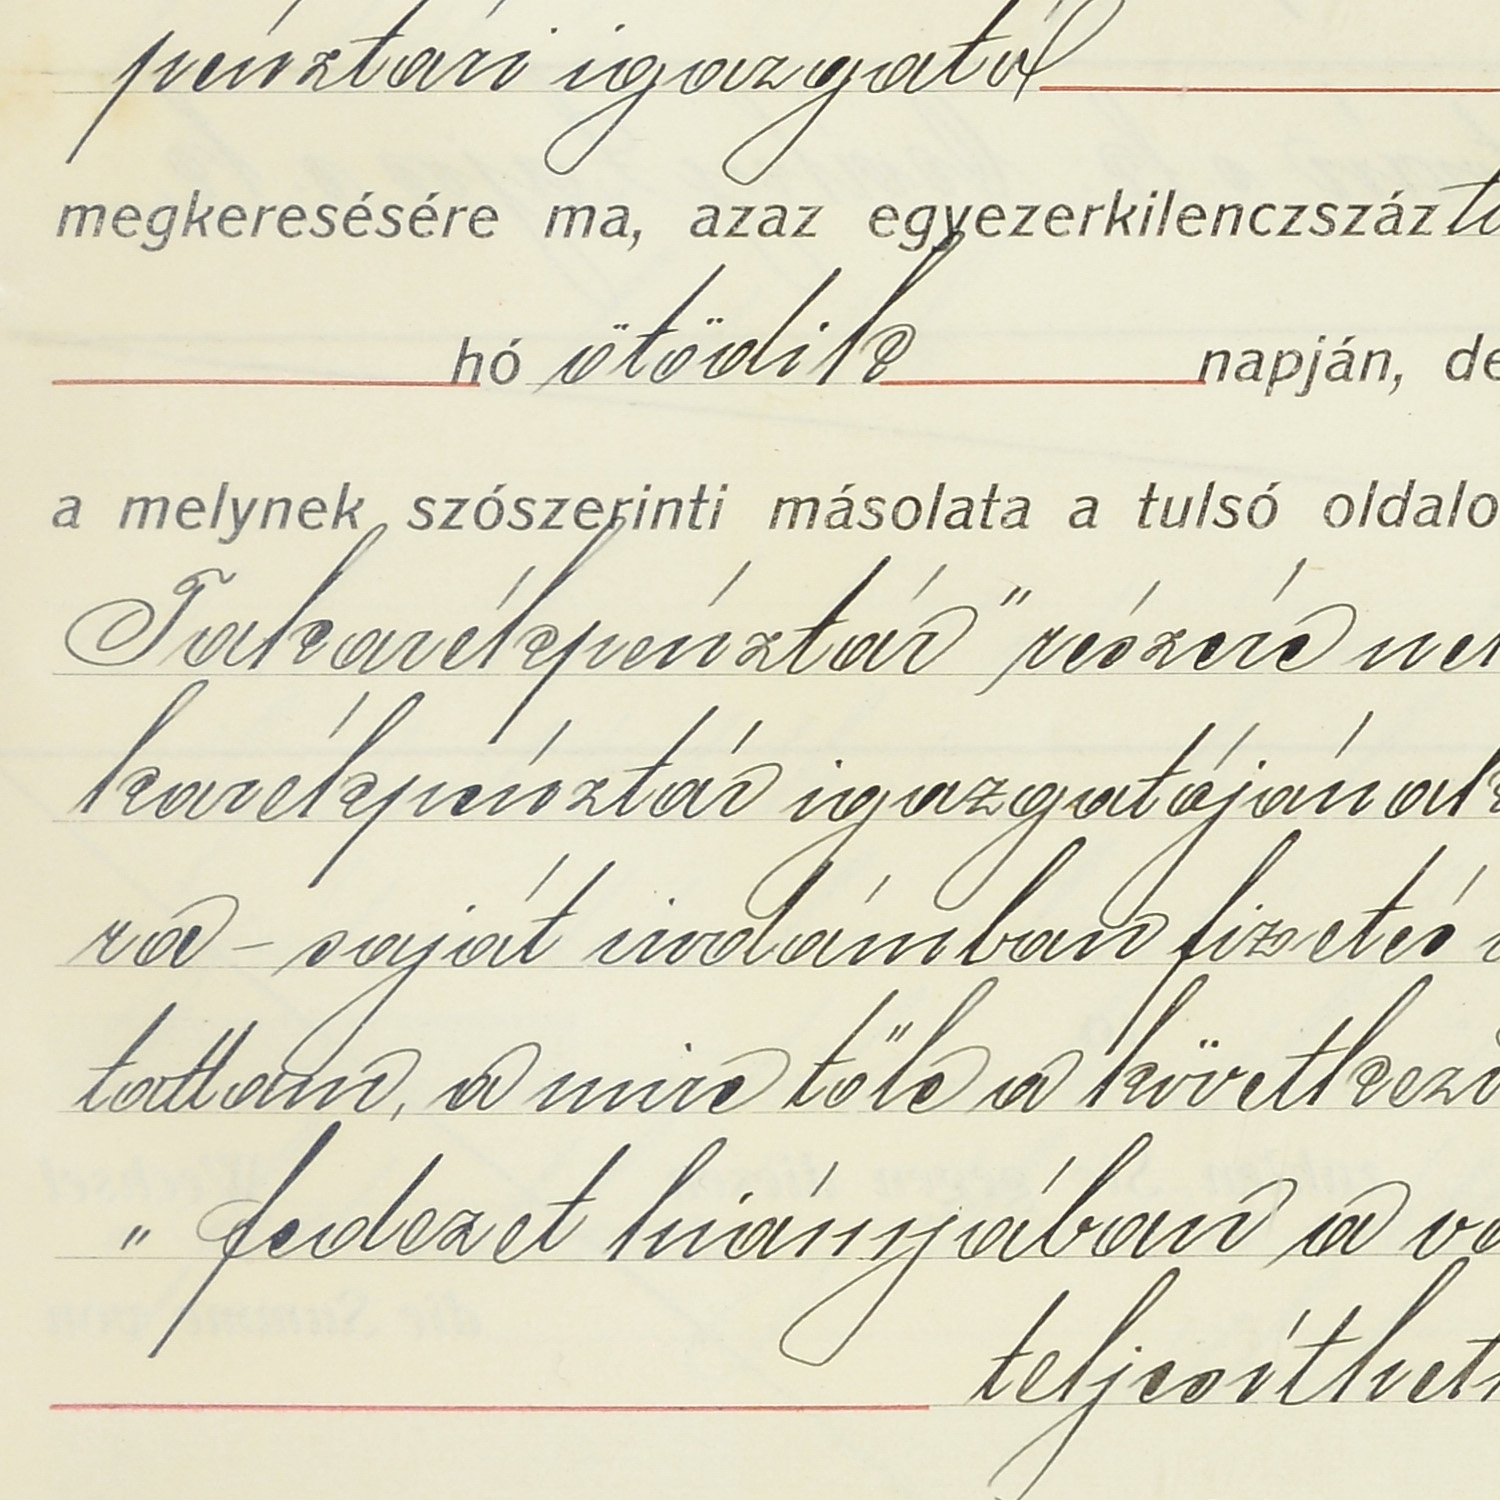 pénztári igazgató
megkeresésére ma, azaz egyezerkilenczszáz ti
hó ötödik napján, de
a melynek szószerinti másolata a tulsó oldalo
Takarékpénztár" részére
karékpénztár igazgatójának
ra – saját irodámban fizetés
tattam, a mire tőle a következő
" fedezet hiányában a
teljesíthet